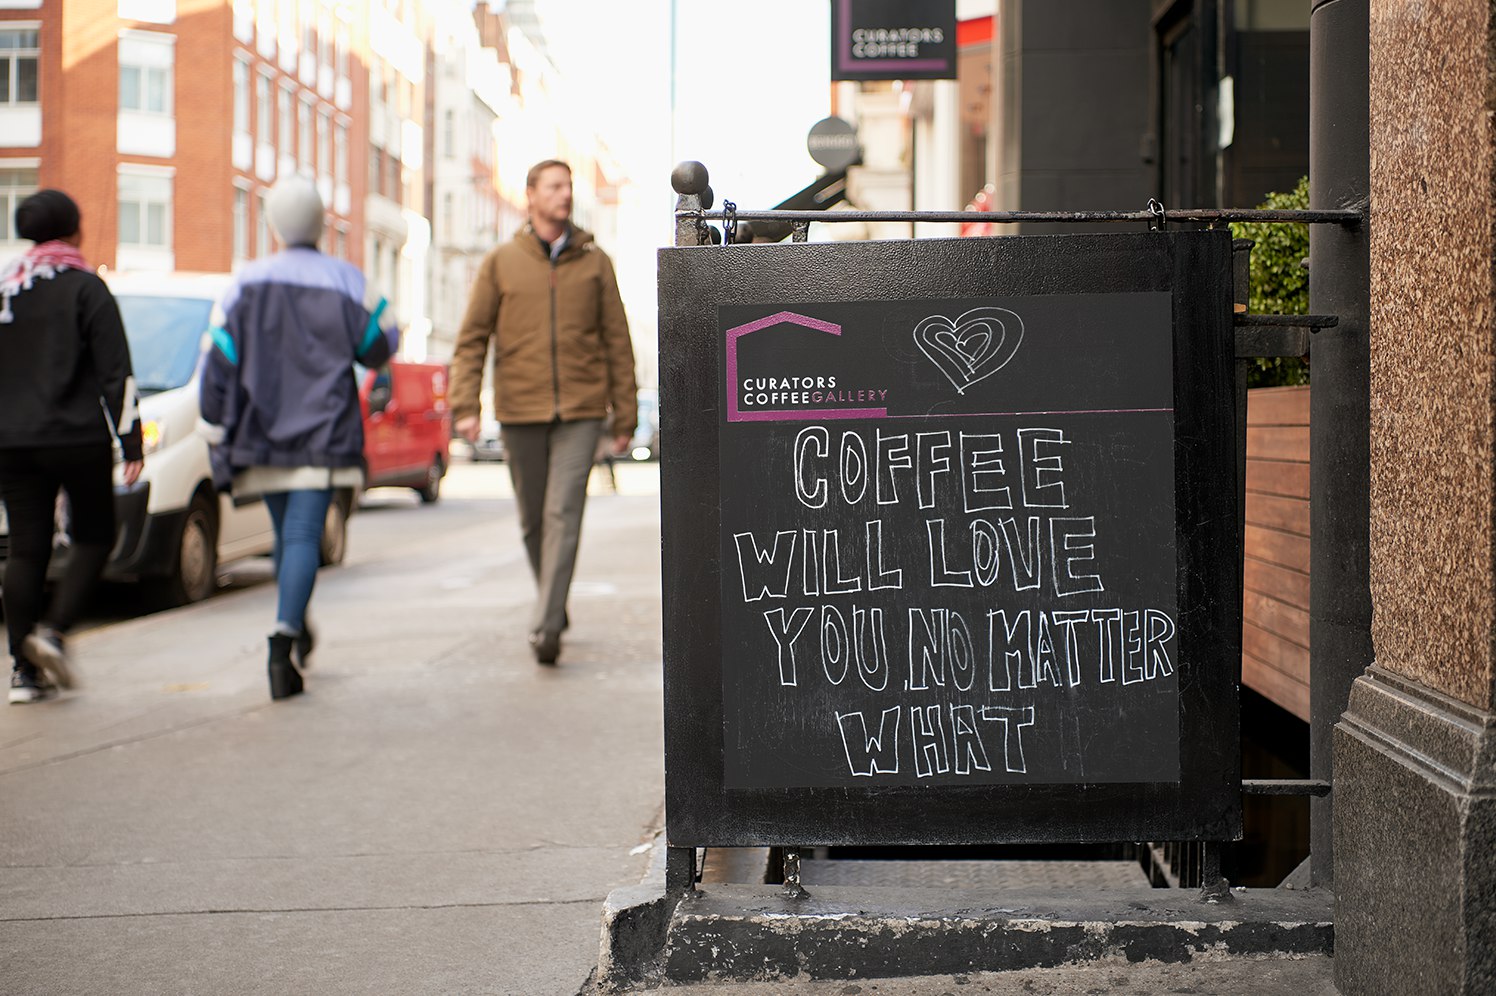 CURATORS
COFFEE
CURATORS
COFFEEGALLERY
COFFEE
WILL LOVE
YOU NO MATTER
WHAT